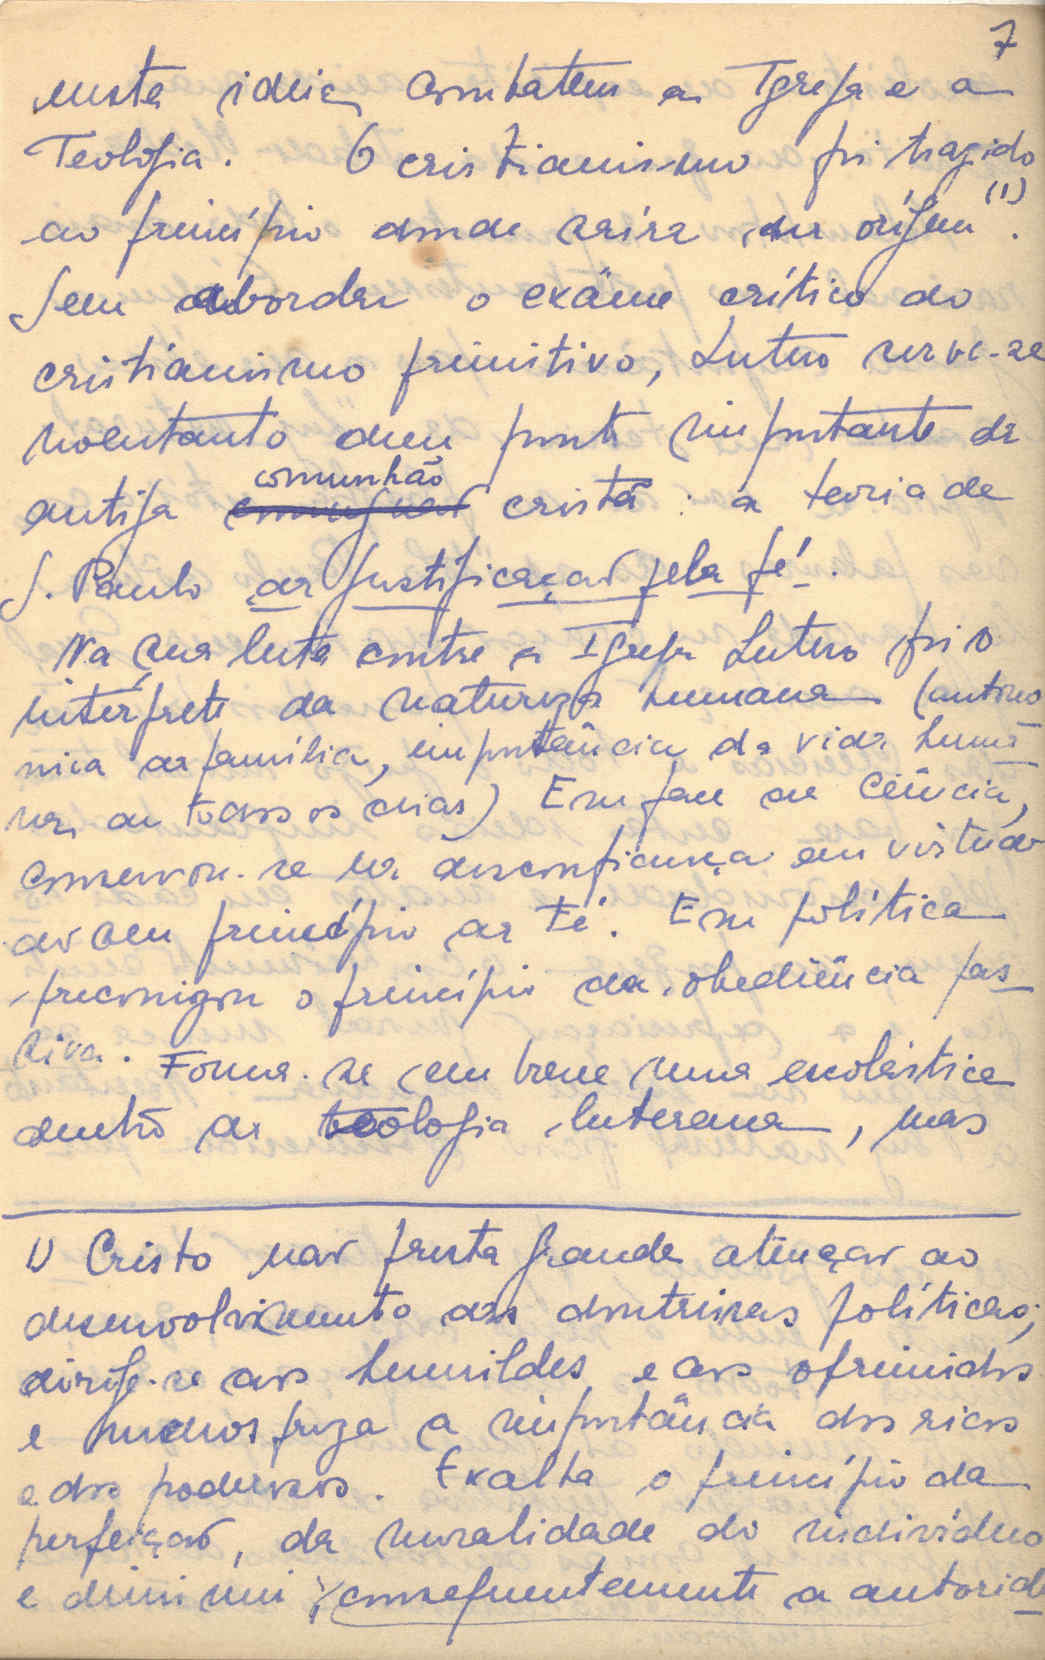 7
nesta ideia, combatem a Igreja e a
Teologia. O cristianismo foi trazido
ao princípio donde saíra, da orígem (1).
Sem abordar o exâme crítico do
cristianismo primitivo, Lutero serve-se
noentanto dum ponto importante da
comunhão
antiga cristã: a teoria de
S. Paulo da Justificação pela fé.
Na sua luta contra a Igreja Lutero foi o
intérprete da natureza humana (autono
mia da família, importância da vida humā
na, de todos os dias) Em face da Ciência,
conservou-se na desconfiança em virtude
do seu princípio da Fé. Em política
preconizou o princípio da obediência pas-
siva. Forma-se em breve uma escolástica
dentro da teologia luterana, mas
1) Cristo não presta grande atenção ao
desenvolvimento das doutrinas políticas;
dirige-se aos humildes e aos oprimidos
e menospreza a importância dos ricos
e dos poderosos. Exalta o princípio da
perfeição, da moralidade do indivíduo
e diminui consequentemente a autorid